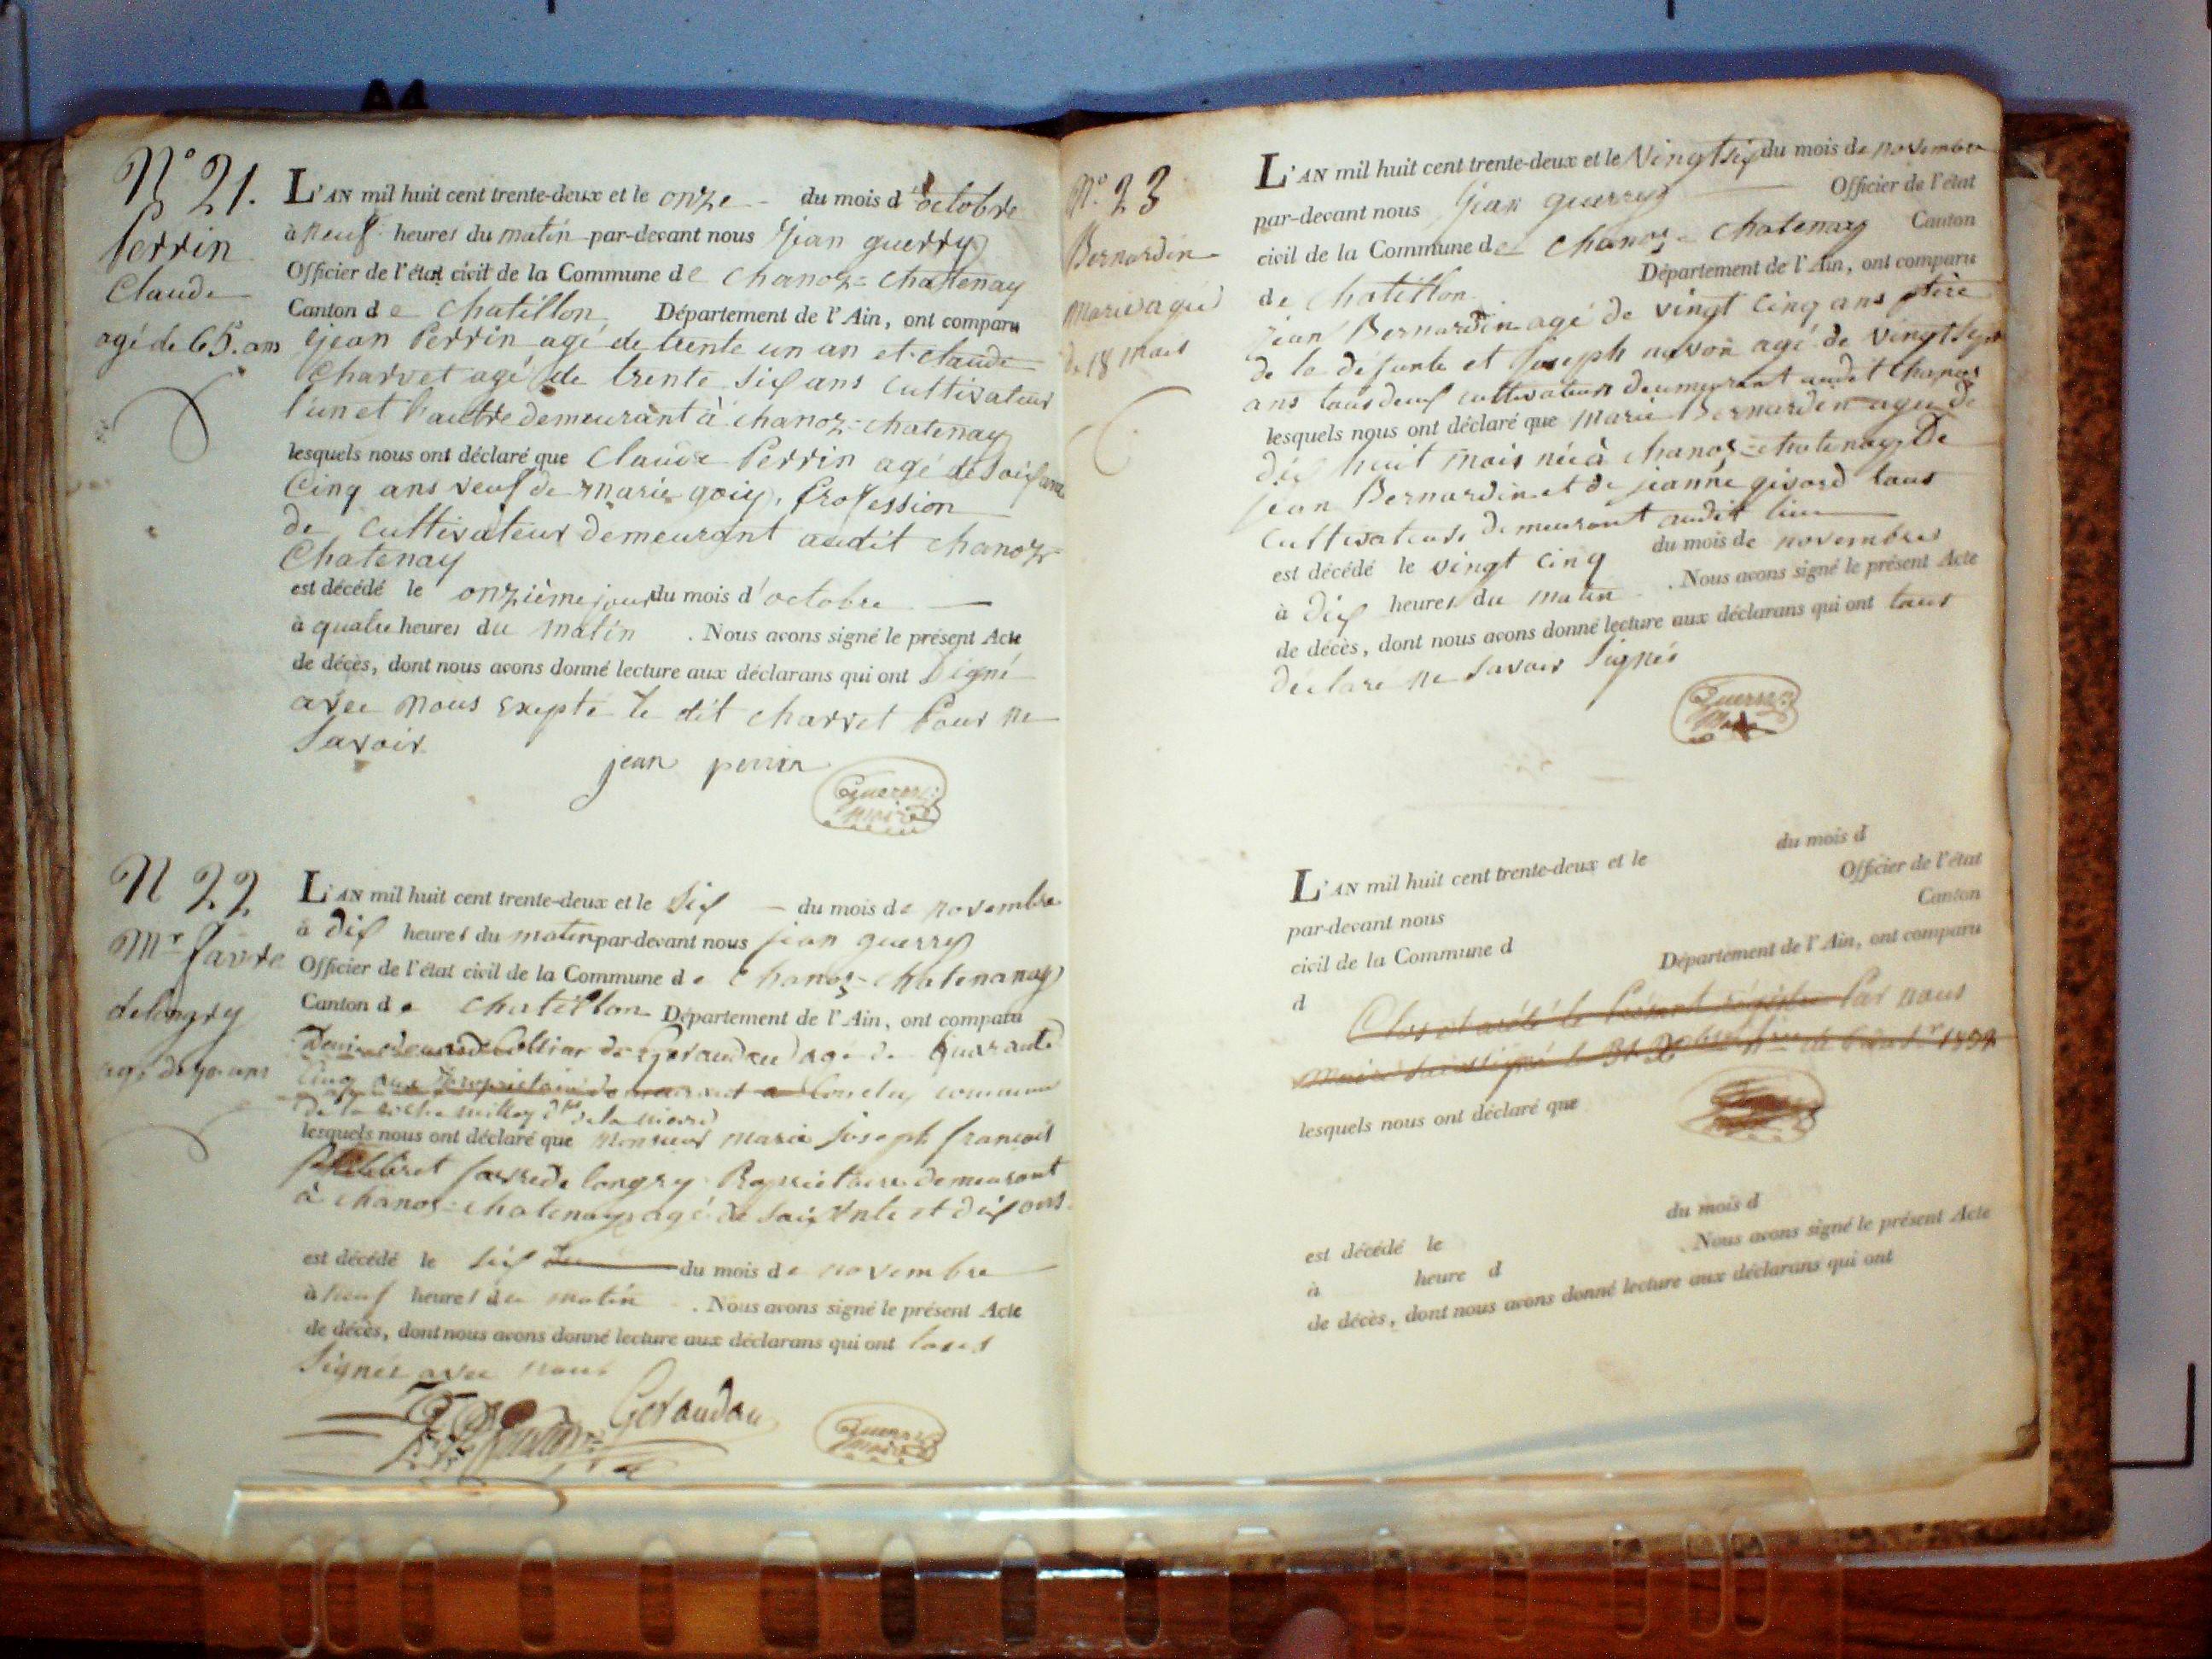 N° 21.
Perrin
Claude
agé de 65. ans
L'AN mil huit cent trente-deux et le onze du mois d'octobre
à neuf heures du matin par-devant nous jean guerry
Officier de l'état civil de la Commune de chanoz=chatenay
Canton de chatillon Département de l'Ain, ont comparu
jean Perrin agé de trente un an et claude
Charvet agé de trente six ans cultivateur
l'un et l'autre demeurant à chanoz=chatenay
lesquels nous ont déclaré que Claude Perrin agé de soixante
Cinq ans veuf de marie goiy, Profession
de cultivateur demeurant audit chanoz=
Chatenay
est décédé le onzième jour du mois d'octobre
à quatre heures du matin . Nous avons signé le présent Acte
de décès, dont nous avons donné lecture aux déclarans qui ont Signé
avec nous exepté le dit charvet Pour ne
Savoir
jean perrin
Guerry
maire
N 22
Mr favre
delongry
agé de 70. ans
L'AN mil huit cent trente-deux et le Six du mois de novembre
à dix heures du matin par-devant nous jean guerry
Officier de l'état civil de la Commune de Chanoz=chatenanay
Canton de chatillon Département de l'Ain, ont comparu
de Geraudau agé de quarante
cinq ans Propriétaire demeurant a commune
de la
lesquels nous ont déclaré que Monsieur marie joseph françois
favre de longry Propriétaire demeurant
à chanoz=chatenay agé de soixante et dix ans.
est décédé le six du mois de novembre
à neuf heures du matin . Nous avons signé le présent Acte
de décès, dont nous avons donné lecture aux déclarans qui ont tous
Signés avec nous
Geraudau
Guerry
maire
N° 23
Bernardin
Marie agée
de 18 mois
L'AN mil huit cent trente-deux et le Vingt six du mois de novembre
par-devant nous jean guerry Officier de l'état
civil de la Commune de chanoz=chatenay Canton
de chatillon Département de l'Ain, ont comparu
jean Bernardin agé de vingt cinq ans père
de la défunte et joseph navon agé de vingt sept
ans tous deux cultivateurs demeurant audit chanoz
lesquels nous ont déclaré que marie Bernardin agée de
dix huit mois née à chanoz=chatenay De
jean Bernardin et de jeanne givord tous
Cultivateurs demeurant audit lieu
est décédé le vingt cinq du mois de novembre
à dix heures du matin . Nous avons signé le présent Acte
de décès, dont nous avons donné lecture aux déclarans qui ont tous
déclaré ne savoir signés
Guerry
Maire
L'AN mil huit cent trente-deux et le du mois d
par-devant nous Officier de l'état
civil de la Commune d Canton
d Département de l'Ain, ont comparu
Clos et arété le Présent régistre Par nous
maire soussigné le 31 Xbre 1832
lesquels nous ont déclaré que
est décédé le du mois d
à heure d . Nous avons signé le présent Acte
de décès, dont nous avons donné lecture aux déclarans qui ont